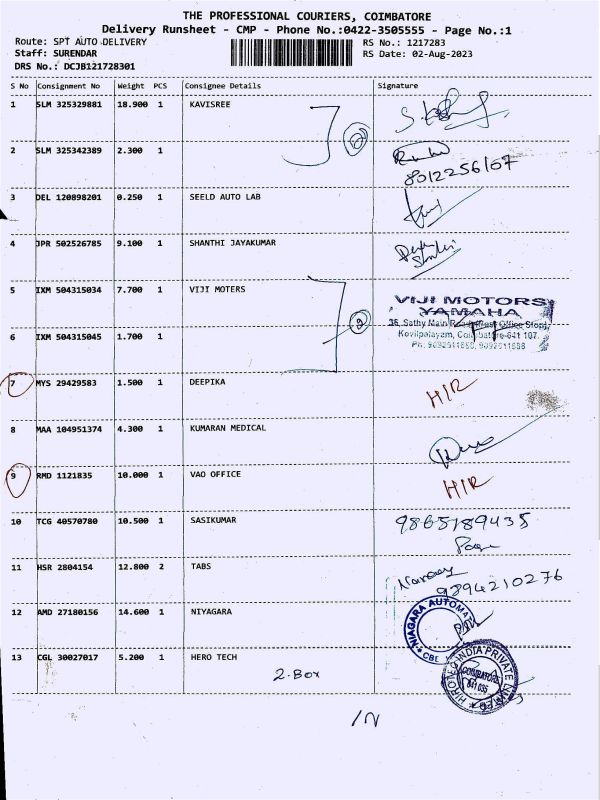 THE PROFESSIONAL COURIERS, COIMBATORE
Delivery Runsheet - CMP - Phone No.:0422-3505555 - Page No.:1
Route: SPT AUTO DELIVERY RS No.: 1217283
Staff: SURENDAR RS Date: 02-Aug-2023
DRS No.: DCJB121728301
S No Consignment No Weight PCS Consignee Details Signature
1 SLM 325329881 18.900 1 KAVISREE
2
2 SLM 325342389 2.300 1
8012256107
3 DEL 120898201 0.250 1 SEELD AUTO LAB
4 JPR 502526785 9.100 1 SHANTHI JAYAKUMAR
5 IXM 504315034 7.700 1 VIJI MOTERS
2
VIJI MOTORS
YAMAHA
6 IXM 504315045 1.700 1
Kovilpalayam, Coimbatore-641 107.
7 MYS 29429583 1.500 1 DEEPIKA H/R
8 MAA 104951374 4.300 1 KUMARAN MEDICAL
9 RMD 1121835 10.000 1 VAO OFFICE H/R
10 TCG 40570780 10.500 1 SASIKUMAR 9865189435
11 HSR 2804154 12.800 2 TABS
9894210276
12 AMD 27180156 14.600 1 NIYAGARA
NIAGARA AUTOMA
CBE
13 CGL 30027017 5.200 1 HERO TECH
2. Box
INDIA PRIVATE
COIMBATORE
641 035
IN